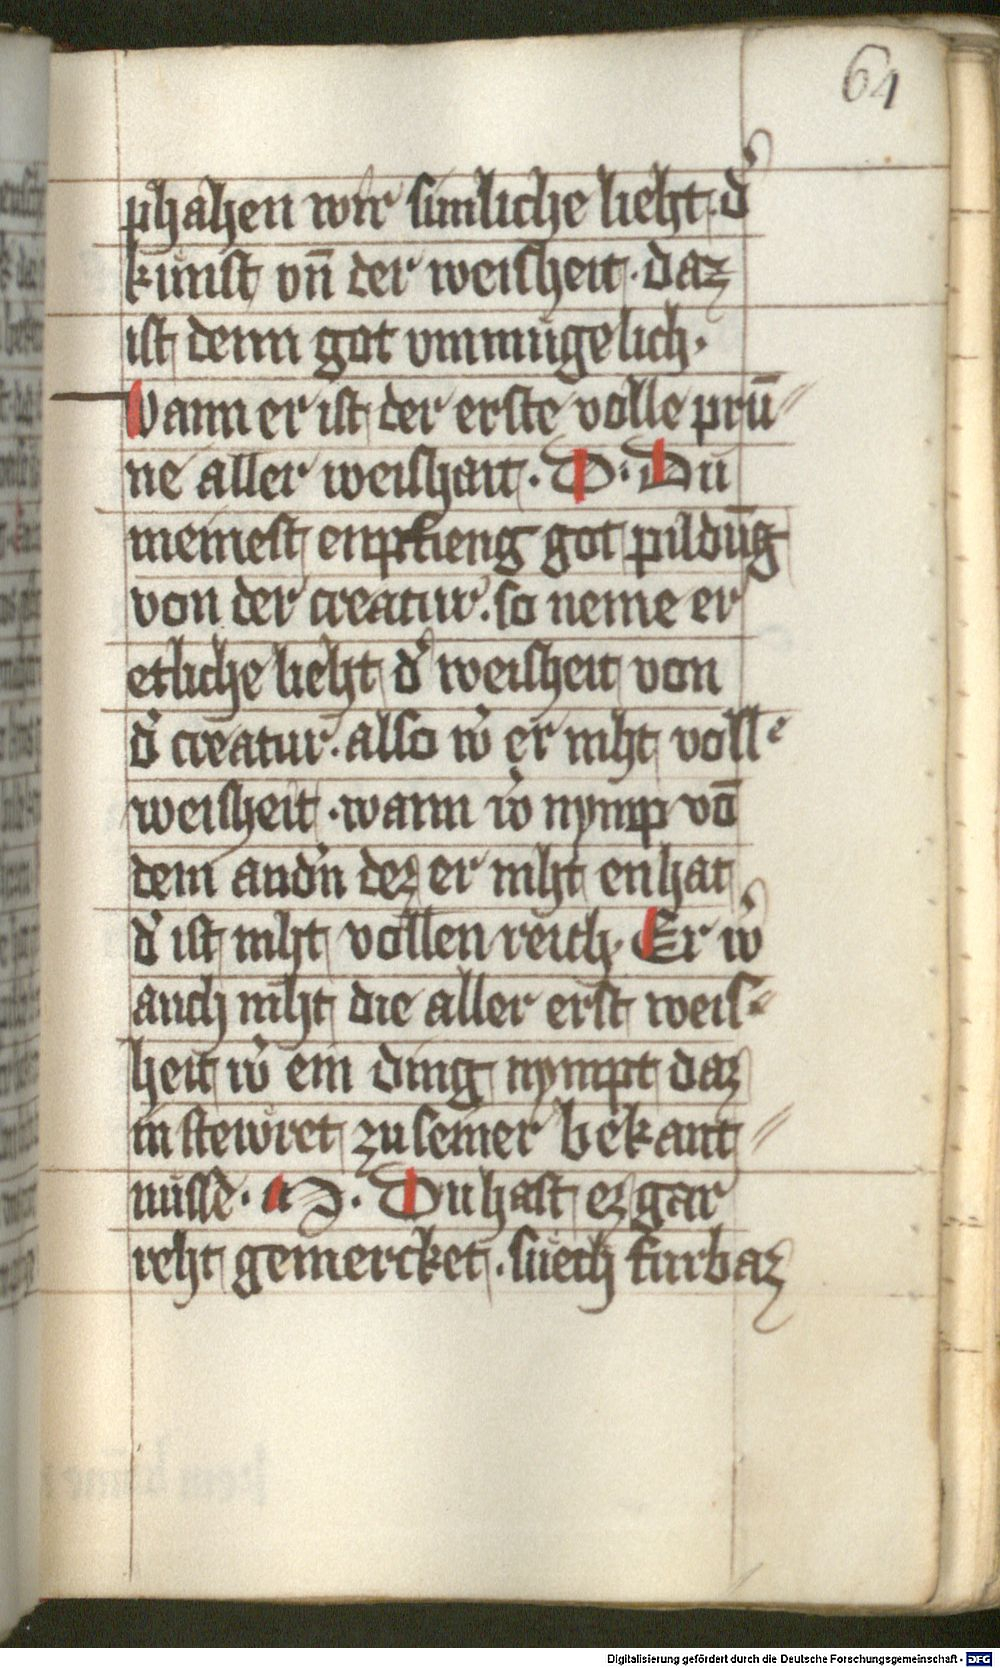 64
phahen wir simliche lieht d'
kunst vn̄ der weisheit · daz
ist denn got vnmugelich ·
Wann er ist der erste volle prū⸗
ne aller weishait · D · Du
meinest enpfieng got pildūg
von der creatur · so neme er
etliche lieht d' weisheit von
d' creatur · also w' er niht voll⸗
weisheit · wann w' nymp vō
dem and'n dez er niht enhat
d' ist niht vollen reich · Er w'
auch niht die aller erst weis⸗
heit w' ein ding nympt daz
in stewret zu seiner bekant⸗
nusse · M · Du hast ez gar
reht gemercket · suech furbaz
Digitalisierung gefördert durch die Deutsche Forschungsgemeinschaft - DFG